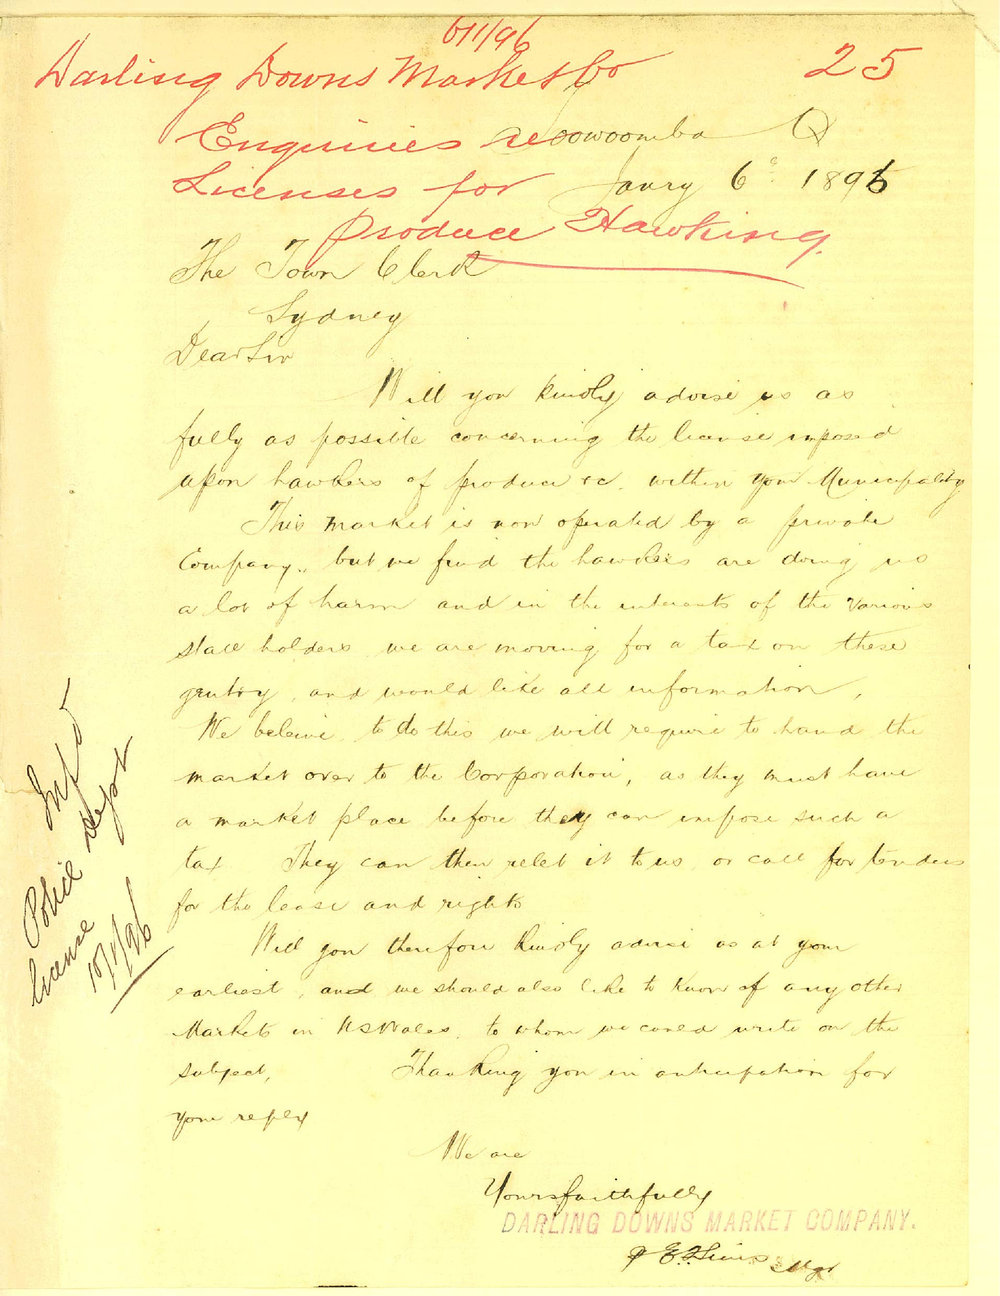 6/1/96
Darling Downs Market Co 25
Enquiries re
Licenses for
produce Hawking.
Toowoomba Q
Janry 6th 1896
The Town Clerk
Sydney
Dear Sir
Will you kindly advise us as
fully as possible concerning the license imposed
upon hawkers of produce &c. within your Municipality
This market is now operated by a private
Company, but we find the hawkers are doing us
a lot of harm and in the interests of the various
stall holders we are moving for a tax on these
gentry, and would like all information,
We beleive to do this we will require to hand the
market over to the Corporation, as they must have
a market place before they can impose such a
tax They can then relet it to us or call for tenders
for the lease and rights
Will you therefore kindly advise us at your
earliest, and we should also like to know of any other
Markets in NSWales, to whom we could write on the
subject, Thanking you in anticipation for
your reply
We are
Yours faithfully
DARLING DOWNS MARKET COMPANY.
Mgr
Infd
Police Dept
license
10/1/96